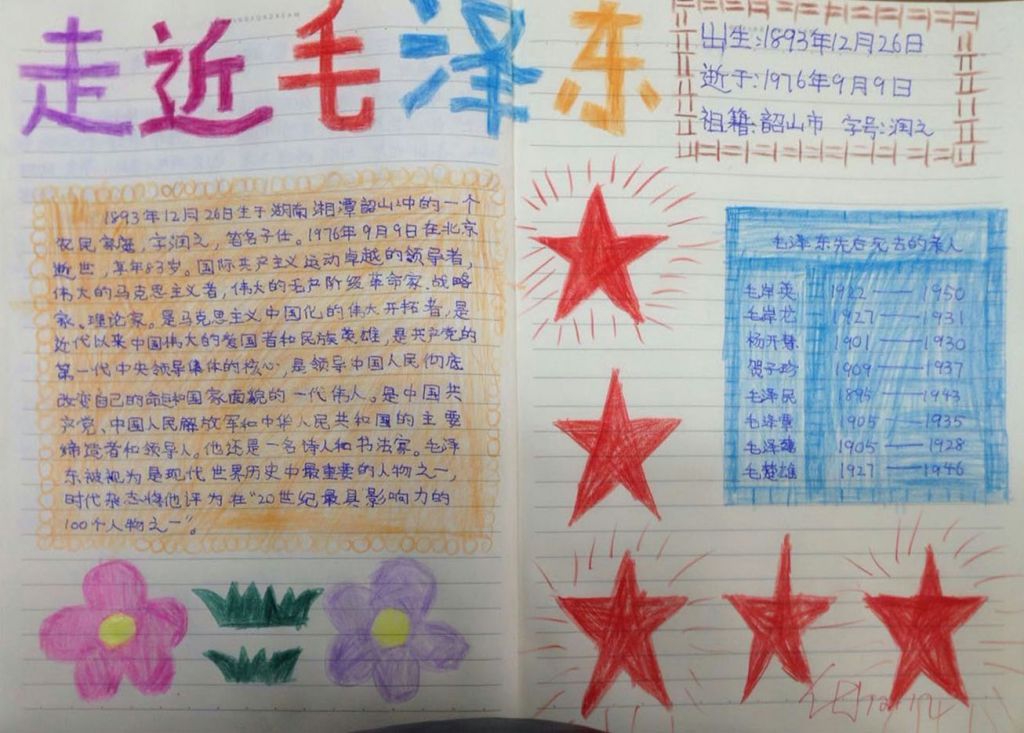 走近毛泽东
出生:1893年12月26日
逝于:1976年9月9日
祖籍:韶山市 字号:润之
1893年12月26日生于湖南湘潭韶山冲的一个
农民家庭,字润之,笔名子任。1976年9月9日在北京
逝世,享年83岁。国际共产主义运动卓越的领导者,
伟大的马克思主义者,伟大的无产阶级革命家、战略
家、理论家。是马克思主义中国化的伟大开拓者,是
近代以来中国伟大的爱国者和民族英雄,是共产党的
第一代中央领导集体的核心,是领导中国人民彻底
改变自己的命运和国家面貌的一代伟人。是中国共
产党、中国人民解放军和中华人民共和国的主要
缔造者和领导人。他还是一名诗人和书法家。毛泽
东被视为是现代世界历史中最重要的人物之一,
时代杂志将他评为在“20世纪最具影响力的
100个人物之一”。
毛泽东先后死去的亲人
毛岸英 1922——1950
毛岸龙 1927——1931
杨开慧 1901——1930
贺子珍 1909——1937
毛泽民 1895——1943
毛泽覃 1905——1935
毛泽建 1905——1928
毛楚雄 1927——1946